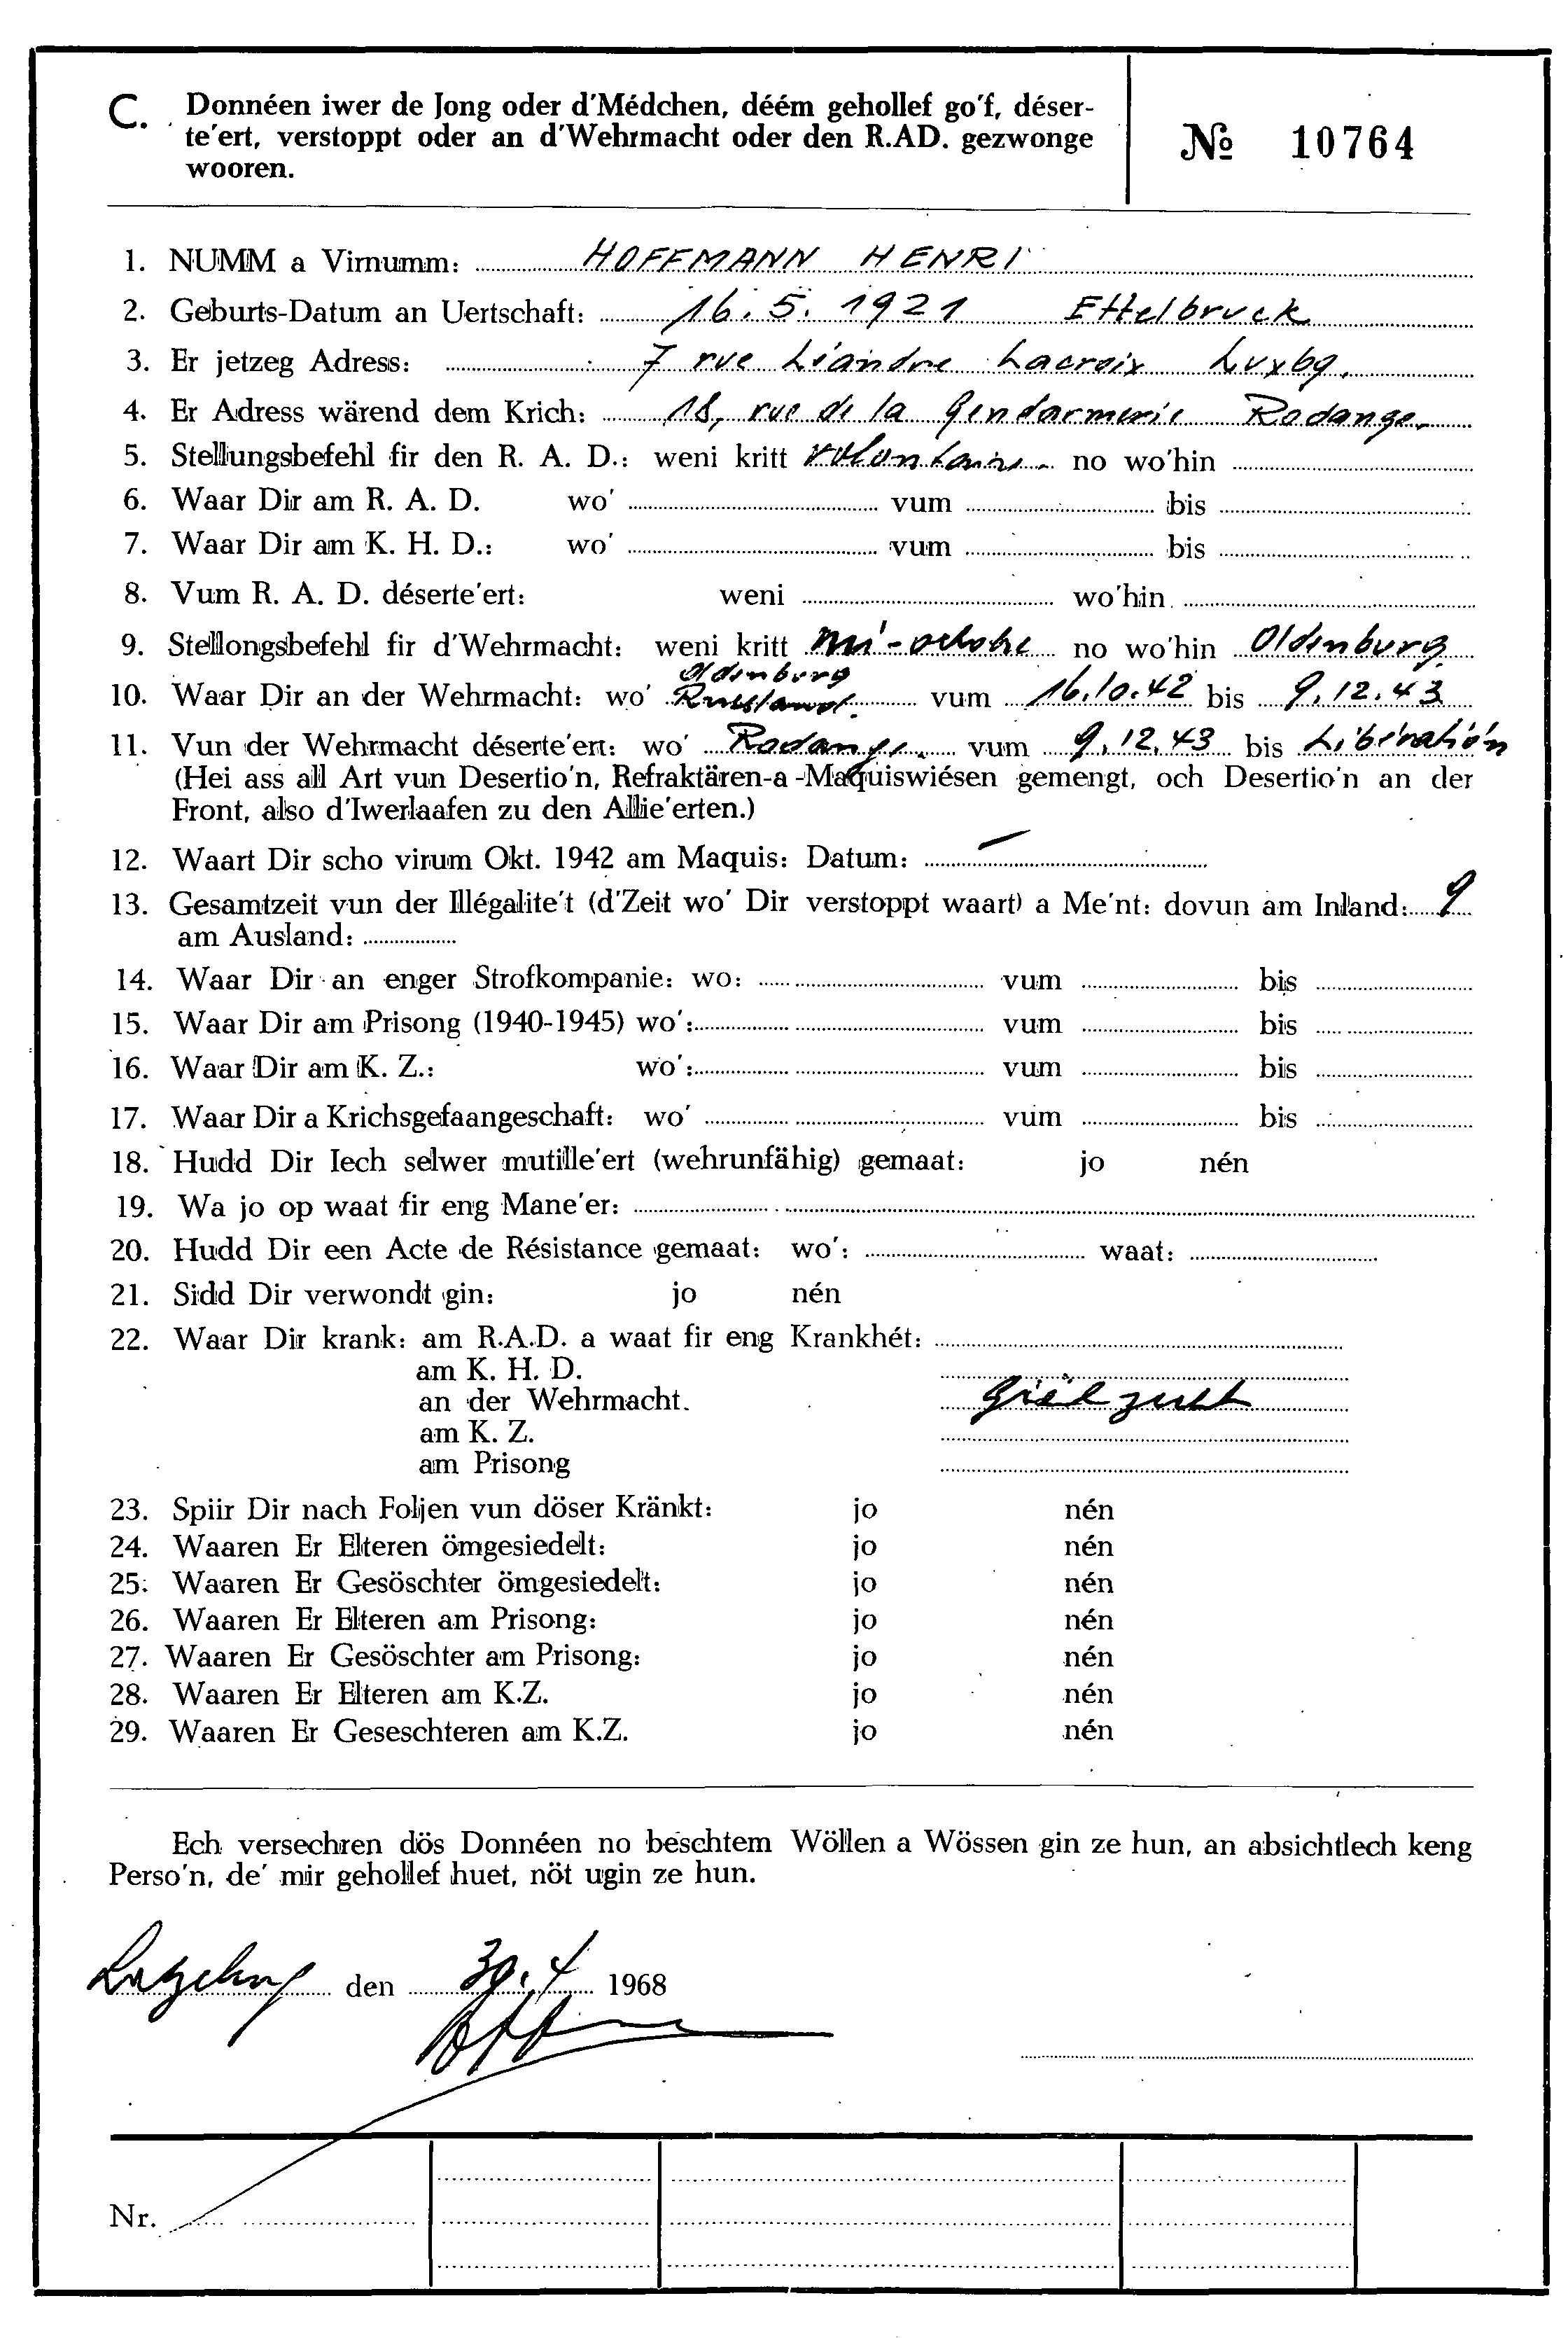 C. Donnéen iwer de Jong oder d'Médchen, déém gehollef go'f, déser-
te'ert, verstoppt oder an d'Wehrmacht oder den R.AD. gezwonge
wooren.
№ 10764
1. NUMM a Virnumm: HOFFMANN HENRI
2. Geburts-Datum an Uertschaft: 16.5.1921 Ettelbruck
3. Er jetzeg Adress: 7 rue Léandre Lacroix Luxbg.
4. Er Adress wärend dem Krich: 18, rue de la Gendarmerie Rodange
5. Stellungsbefehl fir den R. A. D.: weni kritt volontaire no wo'hin
6. Waar Dir am R. A. D. wo' vum bis
7. Waar Dir am K. H. D.: wo' vum bis
8. Vum R. A. D. déserte'ert: weni wo'hin
9. Stellongsbefehl fir d'Wehrmacht: weni kritt mi-octobre no wo'hin Oldenburg
Oldenburg
10. Waar Dir an der Wehrmacht: wo' Russland. vum 16.10.42 bis 9.12.43
11. Vun der Wehrmacht déserte'ert: wo' Rodange vum 9.12.43 bis Libération
(Hei ass all Art vun Desertio'n, Refraktären-a-Maquiswiésen gemengt, och Desertio'n an der
Front, also d'Iwerlaafen zu den Allie'erten.)
12. Waart Dir scho virum Okt. 1942 am Maquis: Datum: —
13. Gesamtzeit vun der Illégalite't (d'Zeit wo' Dir verstoppt waart) a Me'nt: dovun am Inland: 9
am Ausland:
14. Waar Dir an enger Strofkompanie: wo: vum bis
15. Waar Dir am Prisong (1940-1945) wo': vum bis
16. Waar Dir am K. Z.: wo': vum bis
17. Waar Dir a Krichsgefaangeschaft: wo' vum bis
18. Hudd Dir Iech selwer mutille'ert (wehrunfähig) gemaat: jo nén
19. Wa jo op waat fir eng Mane'er:
20. Hudd Dir een Acte de Résistance gemaat: wo': waat:
21. Sidd Dir verwondt gin: jo nén
22. Waar Dir krank: am R.A.D. a waat fir eng Krankhét:
am K. H. D.
an der Wehrmacht. Giëlzucht
am K. Z.
am Prisong
23. Spiir Dir nach Foljen vun döser Kränkt: jo nén
24. Waaren Er Elteren ömgesiedelt: jo nén
25. Waaren Er Gesöschter ömgesiedelt: jo nén
26. Waaren Er Elteren am Prisong: jo nén
27. Waaren Er Gesöschter am Prisong: jo nén
28. Waaren Er Elteren am K.Z. jo nén
29. Waaren Er Geseschteren am K.Z. jo nén
Ech versechren dös Donnéen no beschtem Wöllen a Wössen gin ze hun, an absichtlech keng
Perso'n, de' mir gehollef huet, nöt ugin ze hun.
den 30.4 1968
Nr.